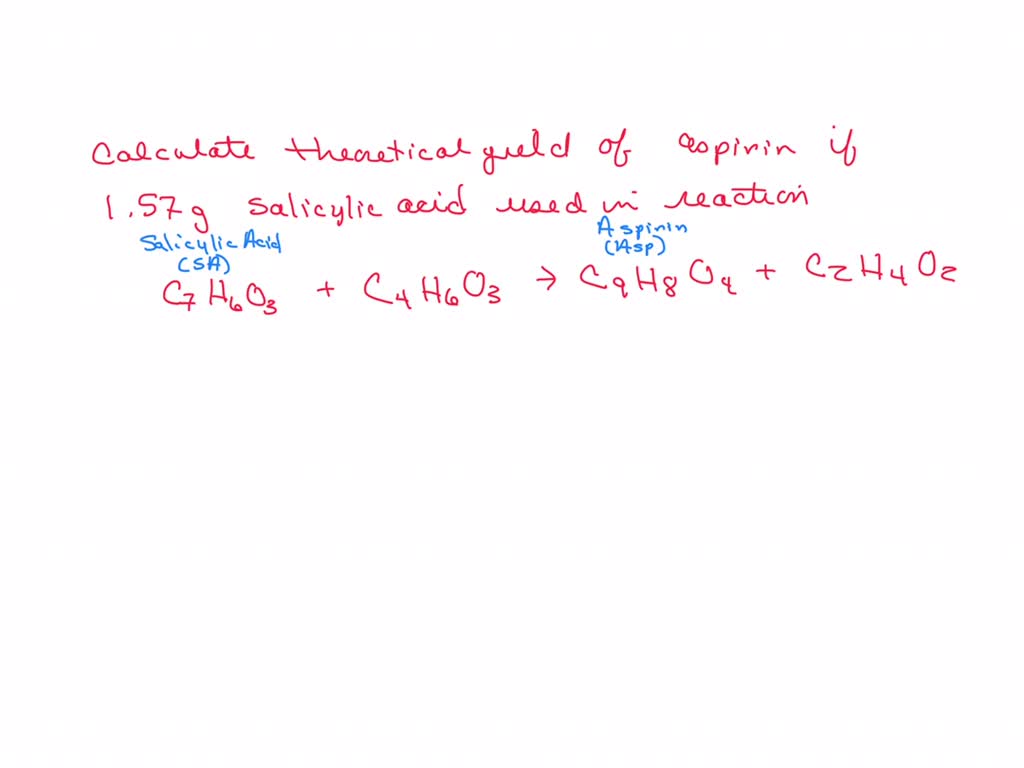 Calculate theoretical yield of aspirin if
1.57g salicylic acid used in reaction
Salicylic Acid
(SA)
Aspirin
(Asp)
C7H6O3 + C4H6O3 → C9H8O4 + C2H4O2